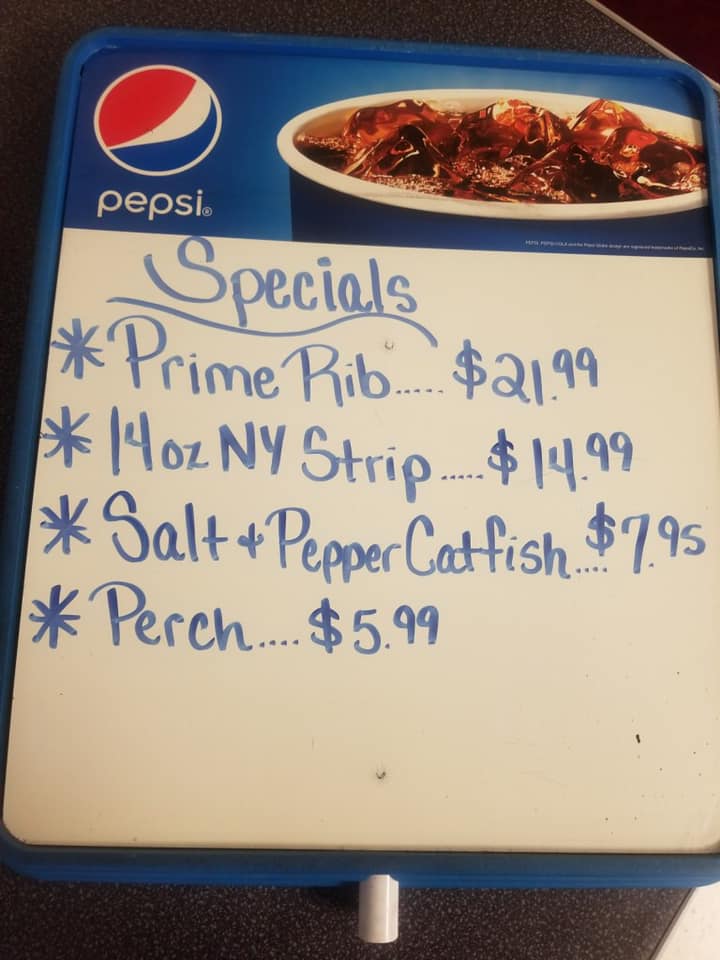 pepsi®
Specials
* Prime Rib..... $21.99
* 14 oz NY Strip..... $14.99
* Salt + Pepper Catfish.... $7.95
* Perch.... $5.99